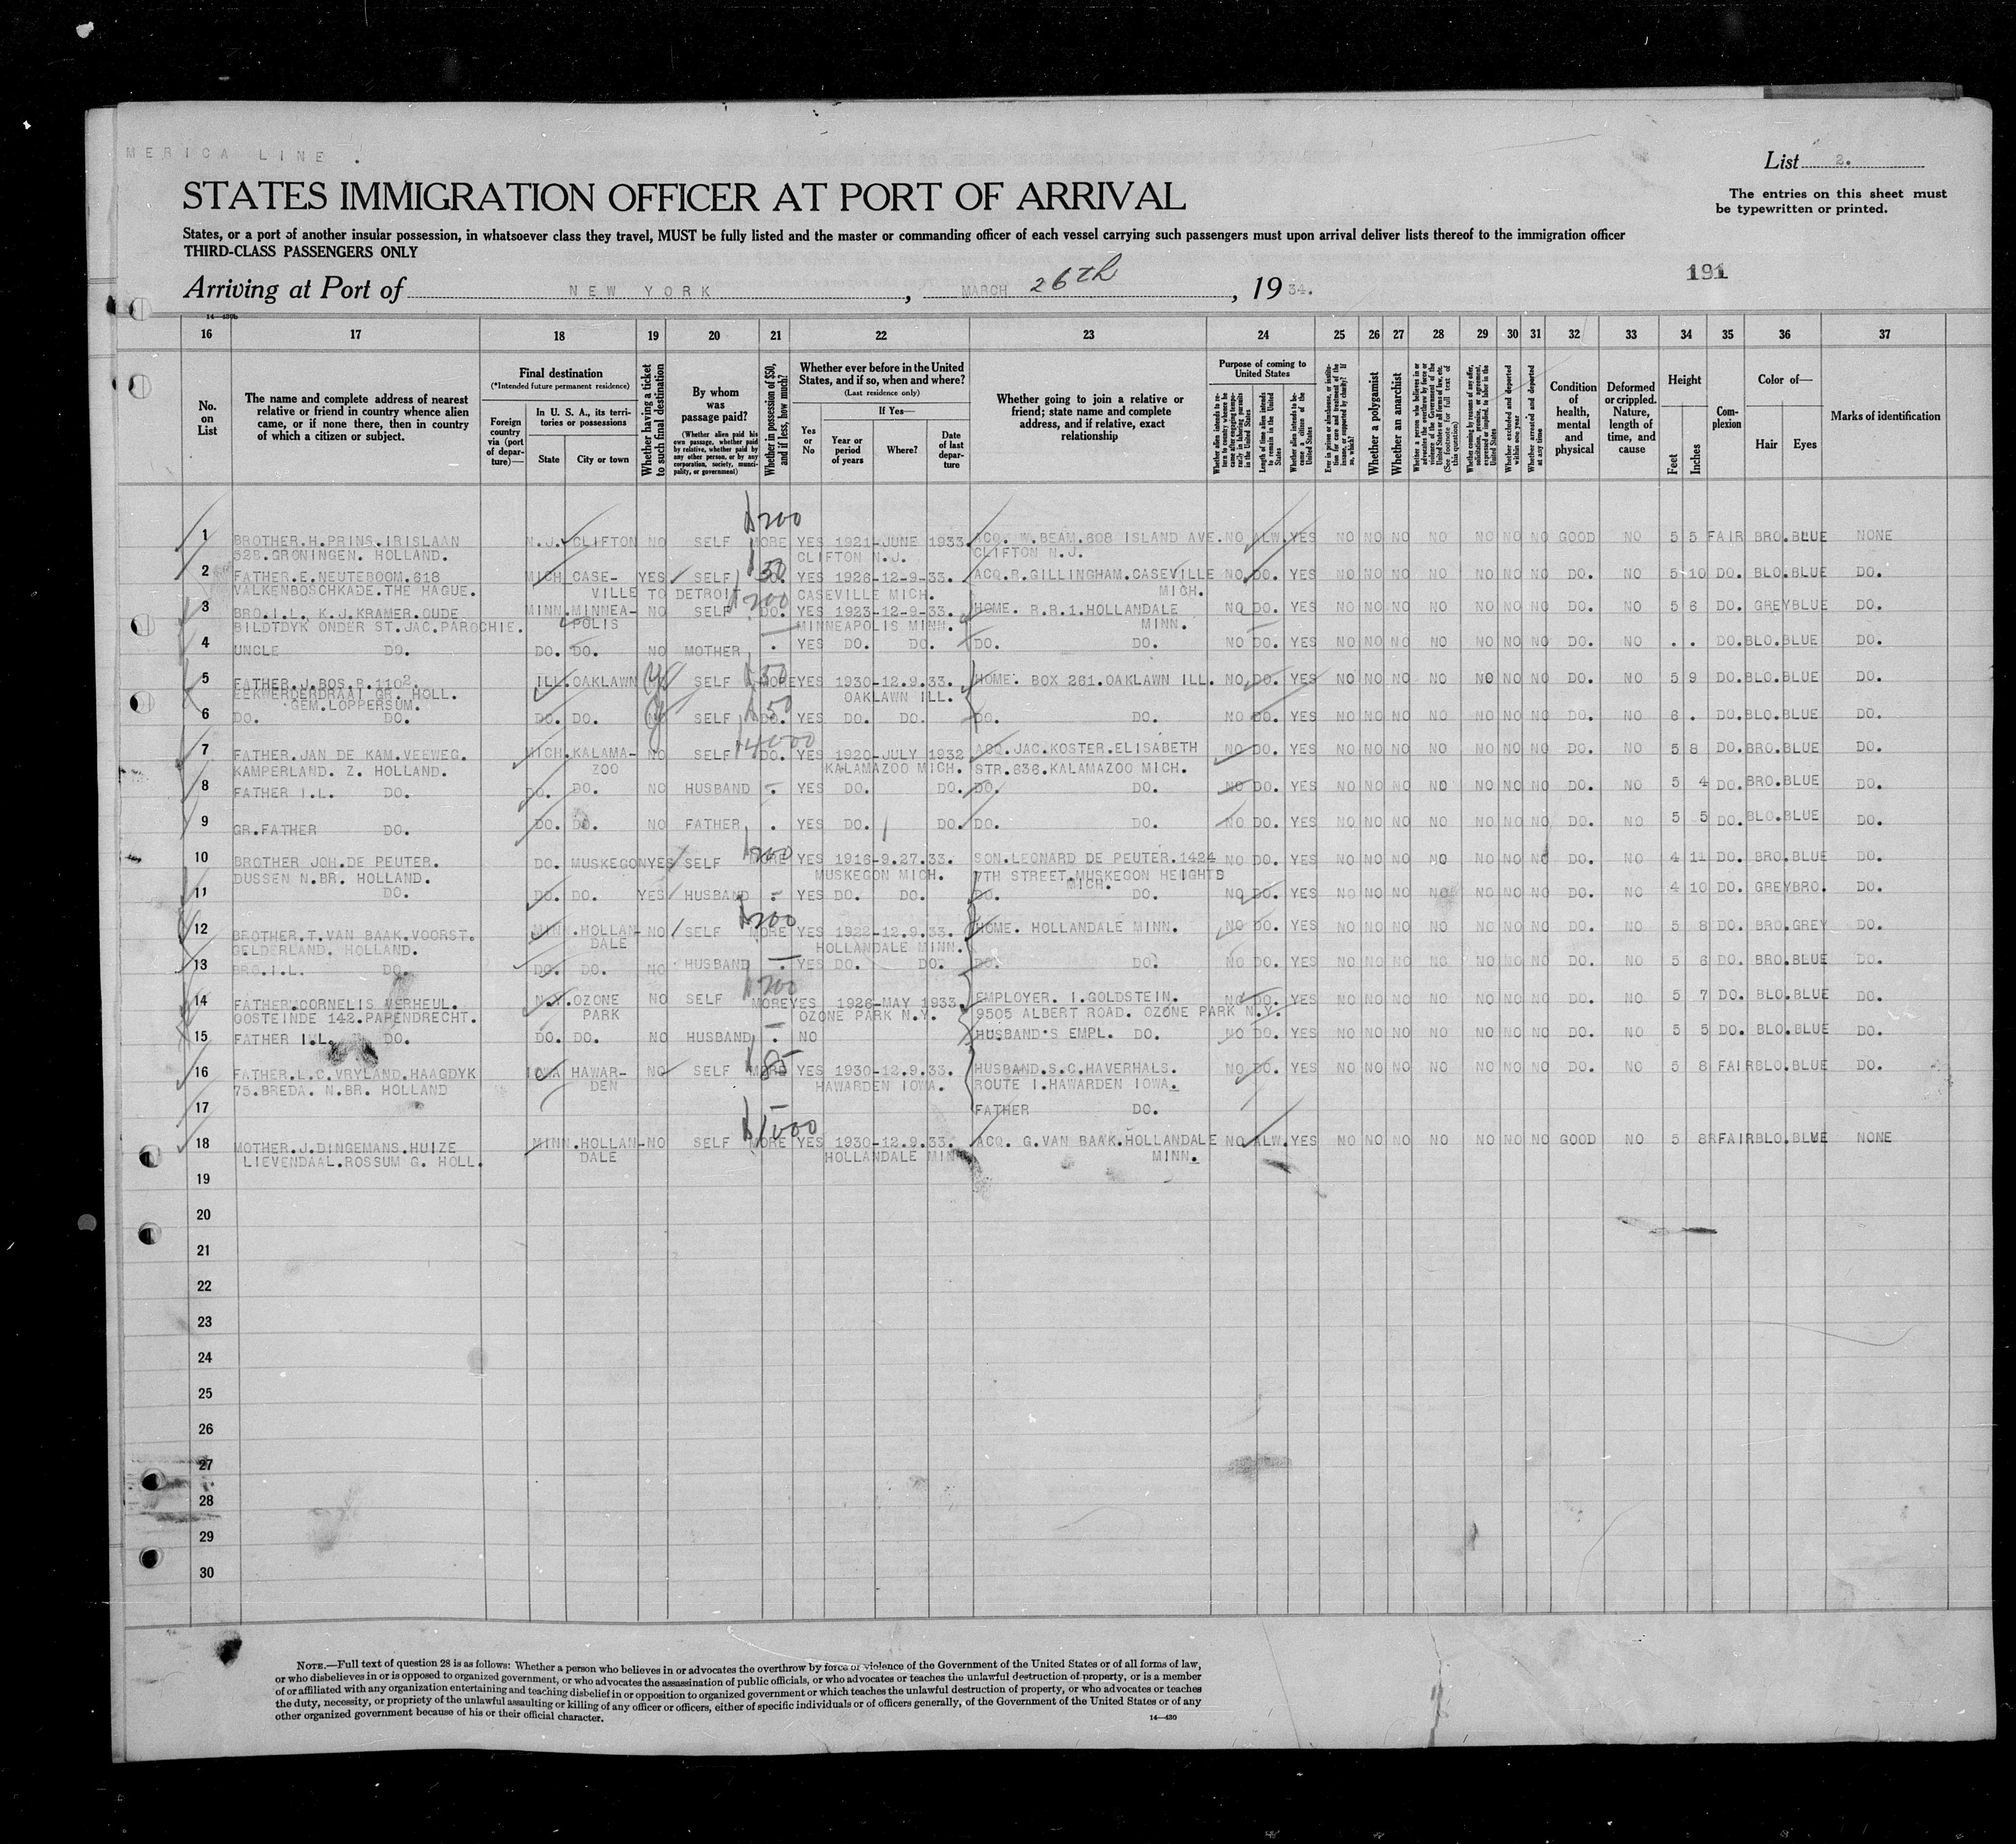 MERICA LINE .
List 2.
STATES IMMIGRATION OFFICER AT PORT OF ARRIVAL
The entries on this sheet must
be typewritten or printed.
States, or a port of another insular possession, in whatsoever class they travel, MUST be fully listed and the master or commanding officer of each vessel carrying such passengers must upon arrival deliver lists thereof to the immigration officer
THIRD-CLASS PASSENGERS ONLY
191
Arriving at Port of NEW YORK, MARCH 26th, 1934.
14—430b
16 17 18 19 20 21 22 23 24 25 26 27 28 29 30 31 32 33 34 35 36 37
No. on List
The name and complete address of nearest relative or friend in country whence alien came, or if none there, then in country of which a citizen or subject.
Final destination
(*Intended future permanent residence)
Foreign country via (port of departure)—
In U. S. A., its territories or possessions
State City or town
Whether having a ticket to such final destination
By whom was passage paid?
(Whether alien paid his own passage, whether paid by relative, whether paid by any other person, or by any corporation, society, municipality, or government)
Whether in possession of $50, and if less, how much?
Whether ever before in the United States, and if so, when and where?
(Last residence only)
Yes or No
If Yes—
Year or period of years
Where?
Date of last departure
Whether going to join a relative or friend; state name and complete address, and if relative, exact relationship
Purpose of coming to United States
Length of time alien intends to remain in the United States
Whether alien intends to become a citizen of the United States
Whether a polygamist
Whether an anarchist
Whether excluded and deported within one year
Whether arrested and deported at any time
Condition of health, mental and physical
Deformed or crippled. Nature, length of time, and cause
Height
Feet Inches
Complexion
Color of—
Hair Eyes
Marks of identification
$200
1 BROTHER.H.PRINS.IRISLAAN N.J. CLIFTON NO SELF MORE YES 1921-JUNE 1933. ACQ. W.BEAM.608 ISLAND AVE. NO ALW. YES NO NO NO NO NO NO NO GOOD NO 5 5 FAIR BRO.BLUE NONE
52B.GRONINGEN. HOLLAND. CLIFTON N.J. CLIFTON N.J.
2 FATHER.E.NEUTEBOOM.618 MICH CASE- YES SELF $50 DO. YES 1926-12-9-33. ACQ.R.GILLINGHAM.CASEVILLE NO DO. YES NO NO NO NO NO NO NO DO. NO 5 10 DO. BLO.BLUE DO.
VALKENBOSCHKADE.THE HAGUE. VILLE TO DETROIT CASEVILLE MICH. MICH.
3 BRO.I.L. K.J.KRAMER.OUDE MINN.MINNEA- NO SELF $200 DO. YES 1923-12-9-33. HOME. R.R.1.HOLLANDALE NO DO. YES NO NO NO NO NO NO NO DO. NO 5 6 DO. GREYBLUE DO.
BILDTDYK ONDER ST.JAC.PAROCHIE. POLIS MINNEAPOLIS MINN. MINN.
4 UNCLE DO. DO. DO. NO MOTHER . YES DO. DO. DO. DO. NO DO. YES NO NO NO NO NO NO NO DO. NO . . DO.BLO.BLUE DO.
5 FATHER.J.BOS.R.1102. ILL.OAKLAWN SELF $50 MORE YES 1930-12.9.33. HOME. BOX 261.OAKLAWN ILL. NO DO. YES NO NO NO NO NO NO NO DO. NO 5 9 DO.BLO.BLUE DO.
EEKWERDERDRAAI GR. HOLL. OAKLAWN ILL.
GEM.LOPPERSUM.
6 DO. DO. DO. DO. SELF $50 DO. YES DO. DO. DO. DO. NO DO. YES NO NO NO NO NO NO NO DO. NO 6 . DO.BLO.BLUE DO.
7 FATHER.JAN DE KAM.VEEWEG. MICH.KALAMA- NO SELF $4000 DO. YES 1920-JULY 1932 ACQ.JAC.KOSTER.ELISABETH NO DO. YES NO NO NO NO NO NO NO DO. NO 5 8 DO.BRO.BLUE DO.
KAMPERLAND. Z. HOLLAND. ZOO KALAMAZOO MICH. STR.636.KALAMAZOO MICH.
8 FATHER I.L. DO. DO. DO. NO HUSBAND - YES DO. DO. DO. DO. NO DO. YES NO NO NO NO NO NO NO DO. NO 5 4 DO.BRO.BLUE DO.
9 GR.FATHER DO. DO. DO. NO FATHER . YES DO. DO. DO. DO. NO DO. YES NO NO NO NO NO NO NO DO. NO 5 5 DO.BLO.BLUE DO.
10 BROTHER JOH.DE PEUTER. DO. MUSKEGON YES SELF $200 MORE YES 1916-9.27.33. SON.LEONARD DE PEUTER.1424 NO DO. YES NO NO NO NO NO NO NO DO. NO 4 11 DO. BRO.BLUE DO.
DUSSEN N.BR. HOLLAND. MUSKEGON MICH. 7TH STREET.MUSKEGON HEIGHTS
MICH.
11 DO. DO. DO. YES HUSBAND - YES DO. DO. DO. DO. NO DO. YES NO NO NO NO NO NO NO DO. NO 4 10 DO. GREYBRO. DO.
12 BROTHER.T.VAN BAAK.VOORST. MINN.HOLLAN- NO SELF $200 MORE YES 1922-12.9.33. HOME. HOLLANDALE MINN. NO DO. YES NO NO NO NO NO NO NO DO. NO 5 8 DO. BRO.GREY DO.
GELDERLAND. HOLLAND. DALE HOLLANDALE MINN.
13 BRO.I.L. DO. DO. DO. NO HUSBAND - YES DO. DO. DO. DO. NO DO. YES NO NO NO NO NO NO NO DO. NO 5 6 DO. BRO.BLUE DO.
14 FATHER.CORNELIS VERHEUL. N.Y.OZONE NO SELF $200 MORE YES 1926-MAY 1933. EMPLOYER. I.GOLDSTEIN. NO DO. YES NO NO NO NO NO NO NO DO. NO 5 7 DO. BLO.BLUE DO.
OOSTEINDE 142.PAPENDRECHT. PARK OZONE PARK N.Y. 9505 ALBERT ROAD. OZONE PARK N.Y.
15 FATHER I.L. DO. DO. DO. NO HUSBAND - NO HUSBAND'S EMPL. DO. NO DO. YES NO NO NO NO NO NO NO DO. NO 5 5 DO. BLO.BLUE DO.
16 FATHER.L.C.VRYLAND.HAAGDYK IOWA HAWAR- NO SELF $85 MORE YES 1930-12.9.33. HUSBAND.S.C.HAVERHALS. NO DO. YES NO NO NO NO NO NO NO DO. NO 5 8 FAIRBLO.BLUE DO.
75.BREDA. N.BR. HOLLAND DEN HAWARDEN IOWA. ROUTE I.HAWARDEN IOWA.
17 FATHER DO.
18 MOTHER.J.DINGEMANS.HUIZE MINN.HOLLAN-NO SELF $1000 MORE YES 1930-12.9.33. ACQ. G.VAN BAAK.HOLLANDALE NO ALW. YES NO NO NO NO NO NO NO GOOD NO 5 8 FAIRBLO.BLUE NONE
LIEVENDAAL.ROSSUM G. HOLL. DALE HOLLANDALE MINN. MINN.
19
20
21
22
23
24
25
26
27
28
29
30
NOTE.—Full text of question 28 is as follows: Whether a person who believes in or advocates the overthrow by force or violence of the Government of the United States or of all forms of law,
or who disbelieves in or is opposed to organized government, or who advocates the assassination of public officials, or who advocates or teaches the unlawful destruction of property, or is a member
of or affiliated with any organization entertaining and teaching disbelief in or opposition to organized government or which teaches the unlawful destruction of property, or who advocates or teaches
the duty, necessity, or propriety of the unlawful assaulting or killing of any officer or officers, either of specific individuals or of officers generally, of the Government of the United States or of any
other organized government because of his or their official character.
14—430